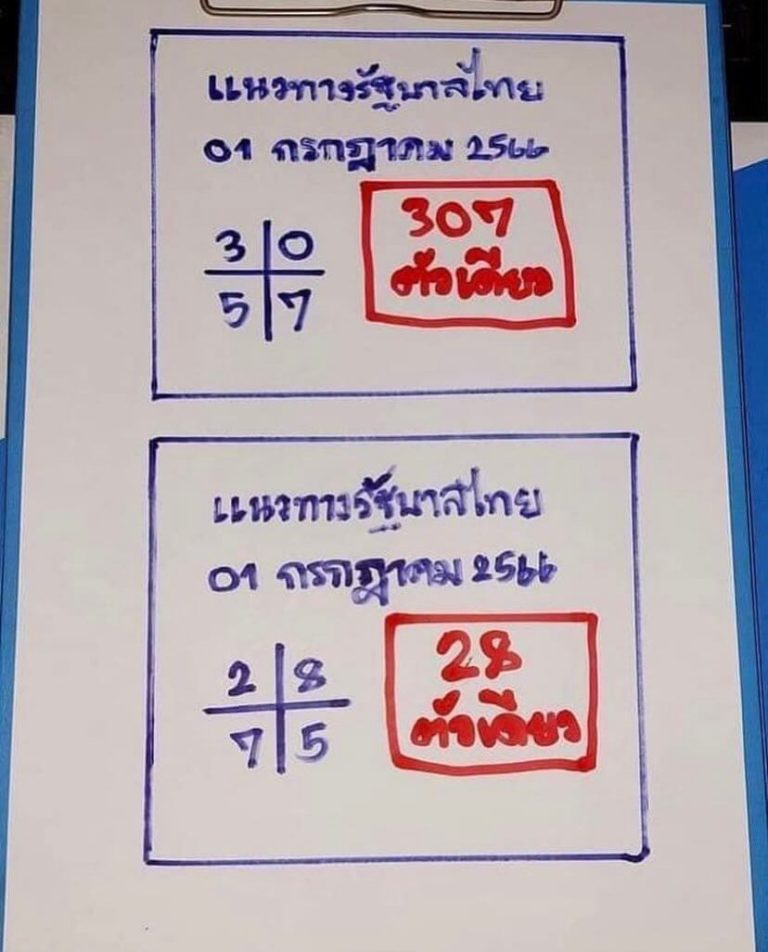 แนวทางรัฐบาลไทย
01 กรกฎาคม 2566
3 0
5 7
307
ตัวเดียว
แนวทางรัฐบาลไทย
01 กรกฎาคม 2566
2 8
7 5
28
ตัวเดียว